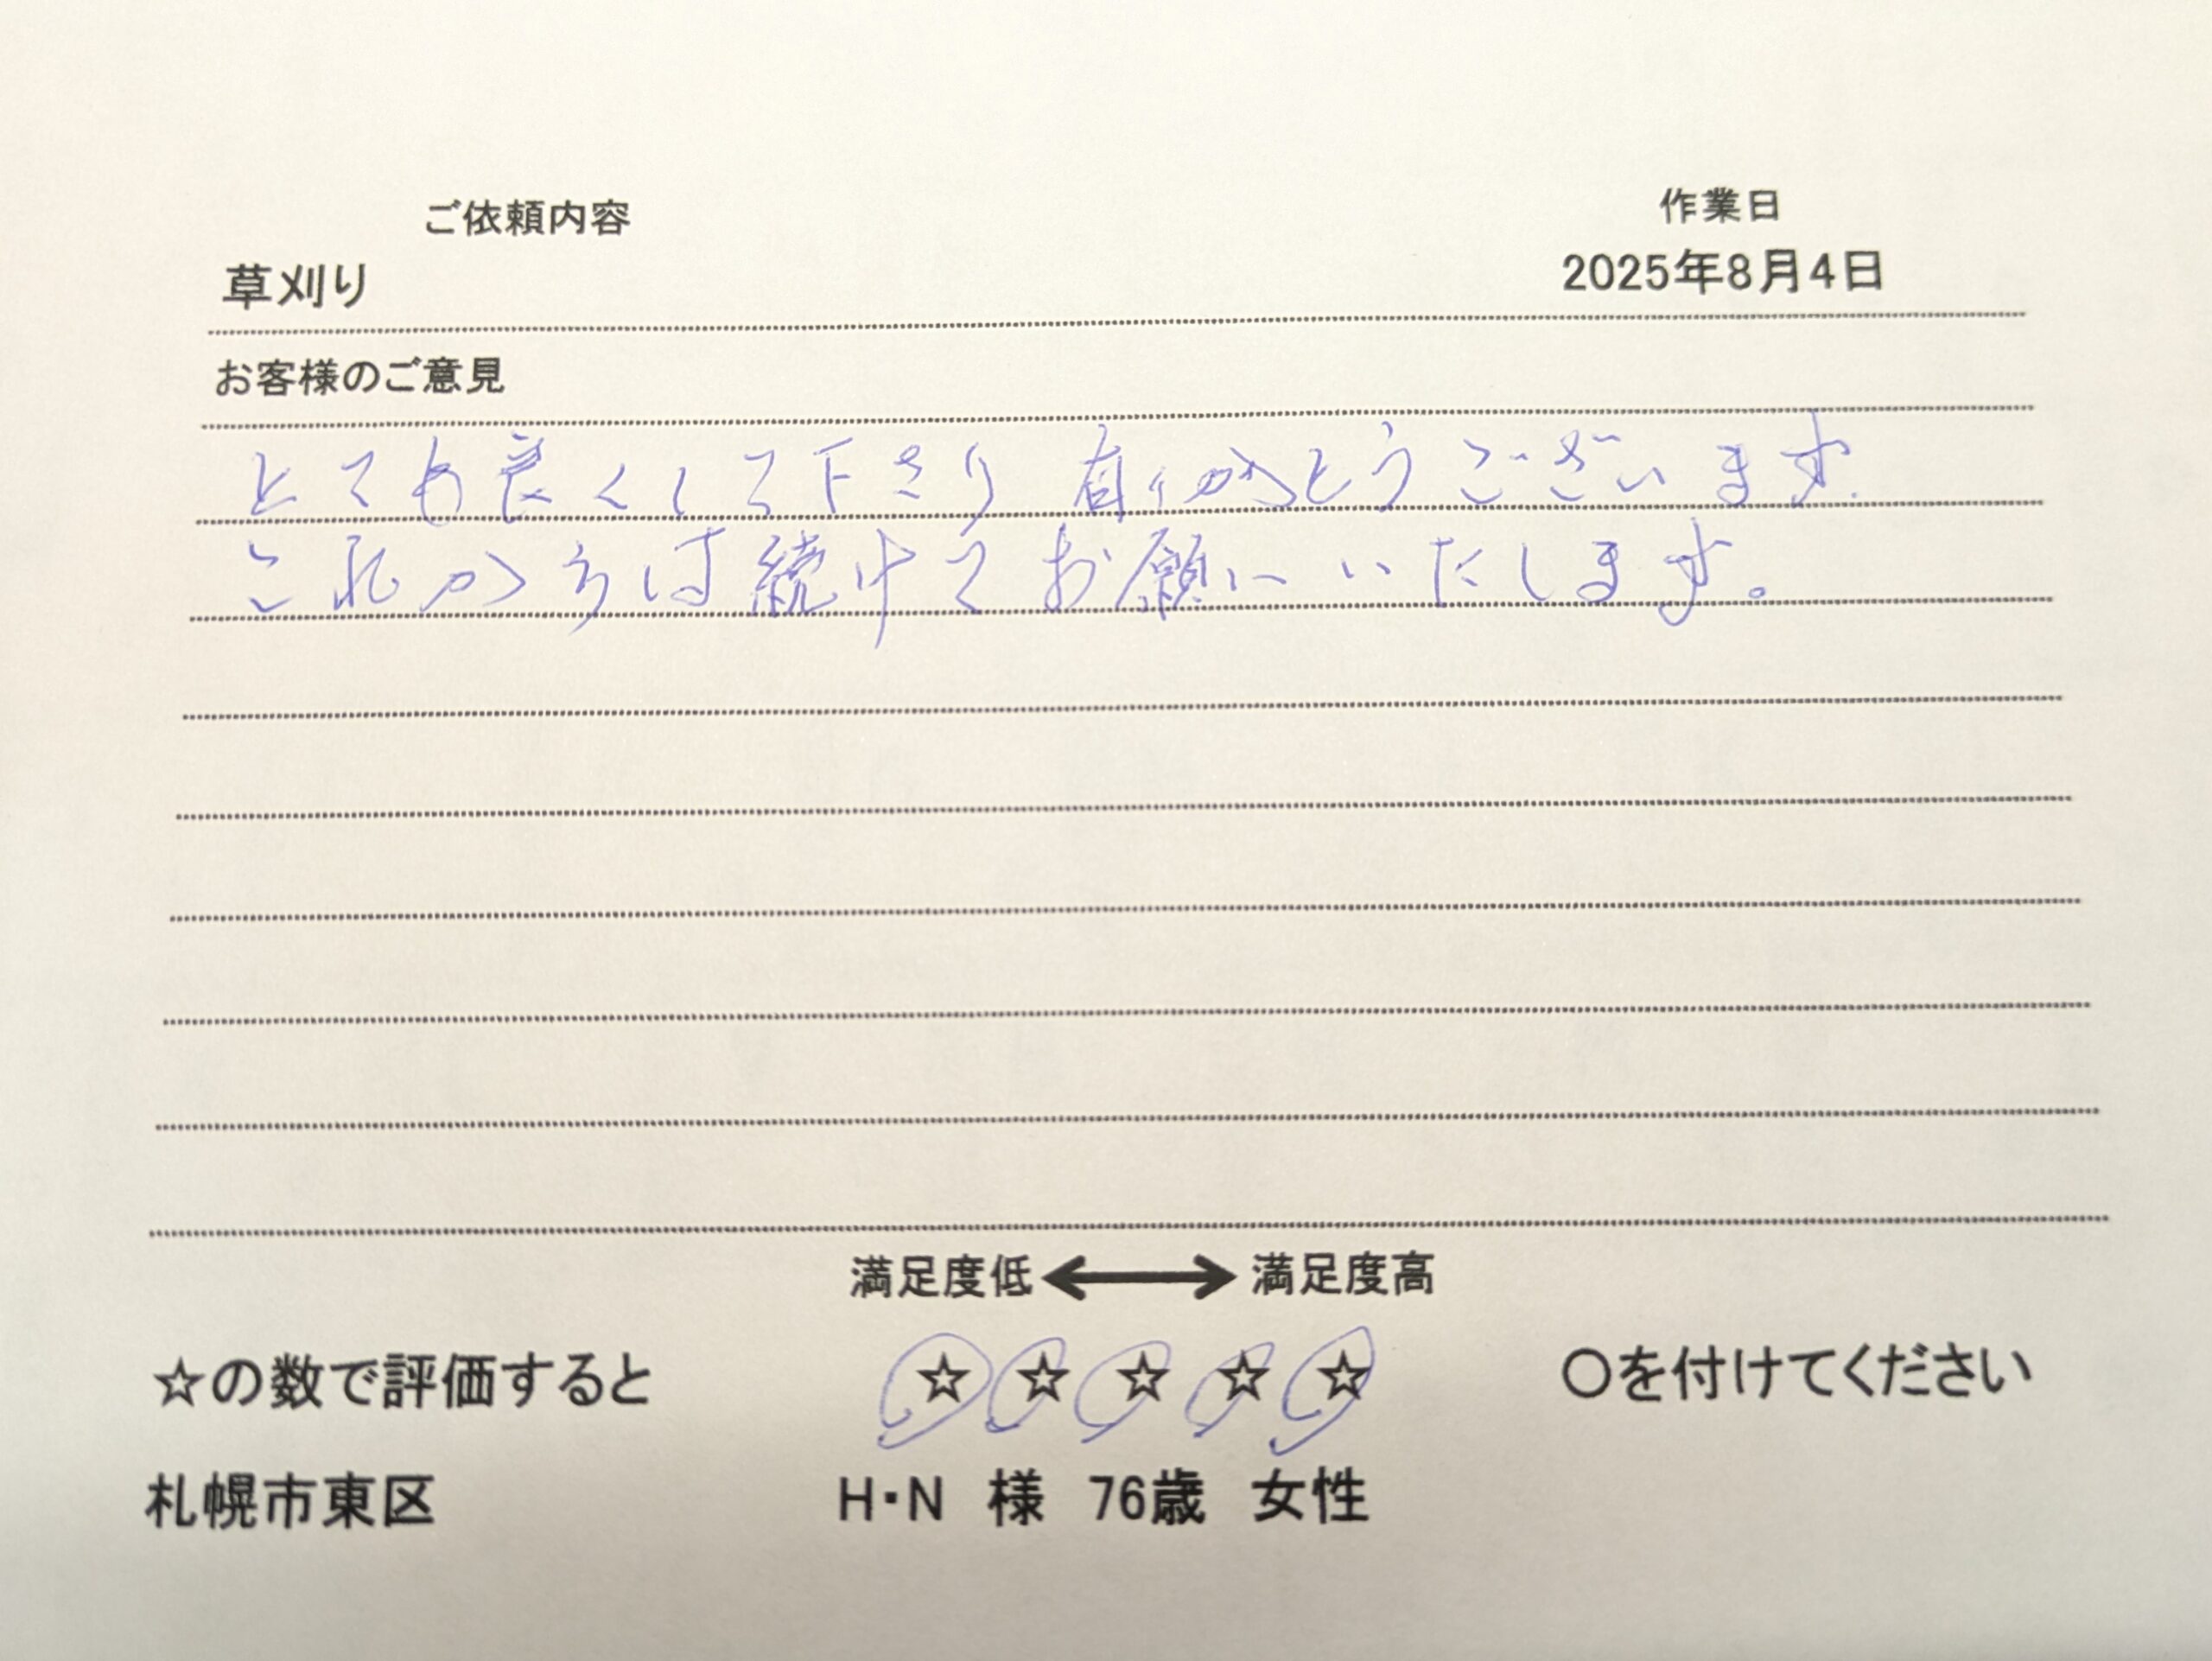 ご依頼内容
作業日
草刈り
2025年8月4日
お客様のご意見
とても良くして下さり 有りがとうございます.
これからは続けてお願いいたします。
満足度低 ⟷ 満足度高
☆の数で評価すると ☆☆☆☆☆ 〇を付けてください
札幌市東区 H・N 様 76歳 女性